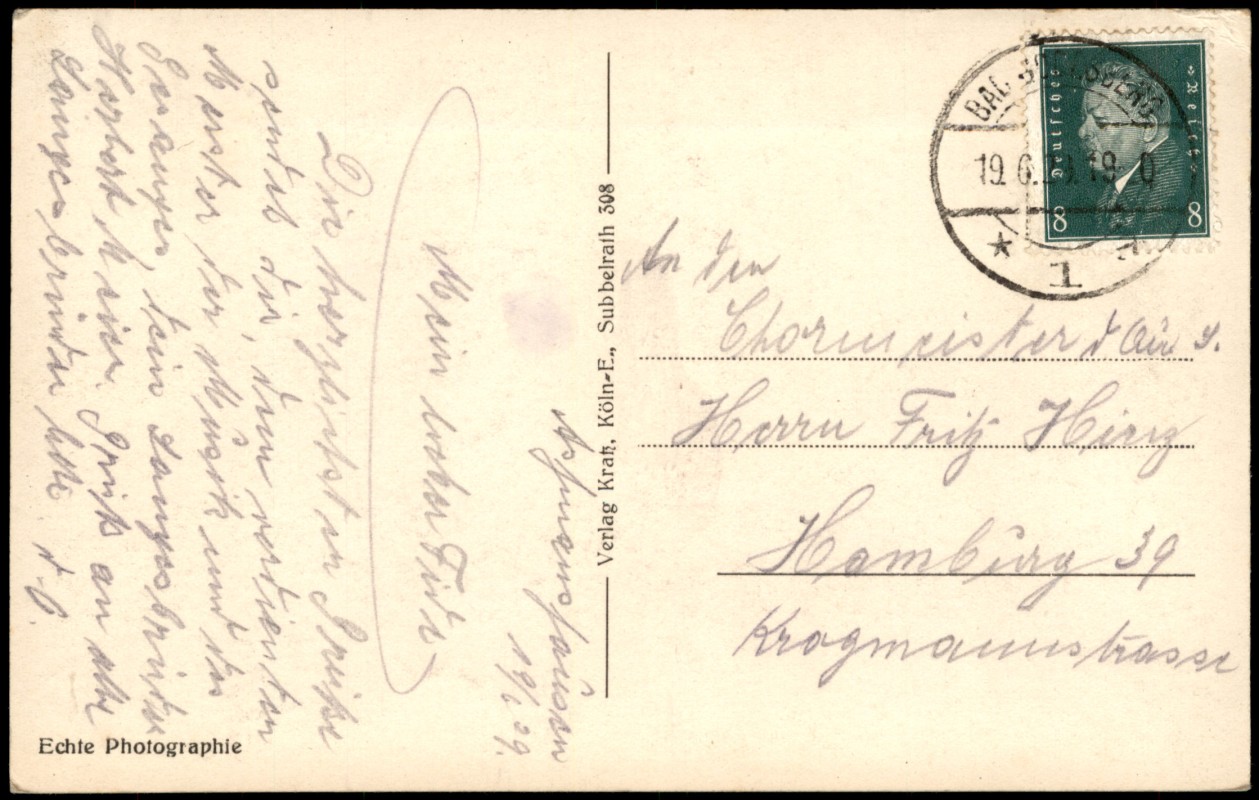 Aßmannshausen
19/6 29.
Mein lieber Fritz
Die herzlichsten Grüße
sendet dir, dem verdienten
Meister der Musik und des
Gesanges, dein Sangesbruder
Herbert Meier. Gruß an alle
Sangesbrüder
Echte Photographie
Verlag Kratz, Köln-E., Subbelrath 308
BAD GODESBERG
19.6.29.18-0
* 1
Deutsches Reich
8 8
An den
Chormeister d
Herrn Fritz Hinz
Hamburg 39
Krogmannstrasse